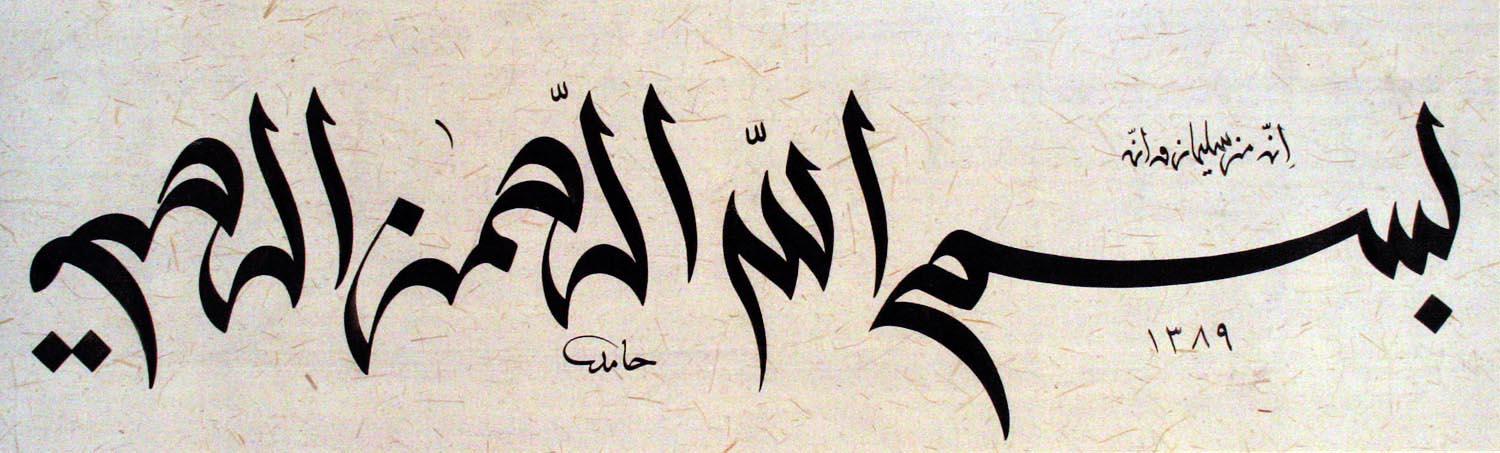 إنّه من سليمان وإنّه
بسم اللّه الرّحمٰن الرحيم
١٣٨٩
حامد